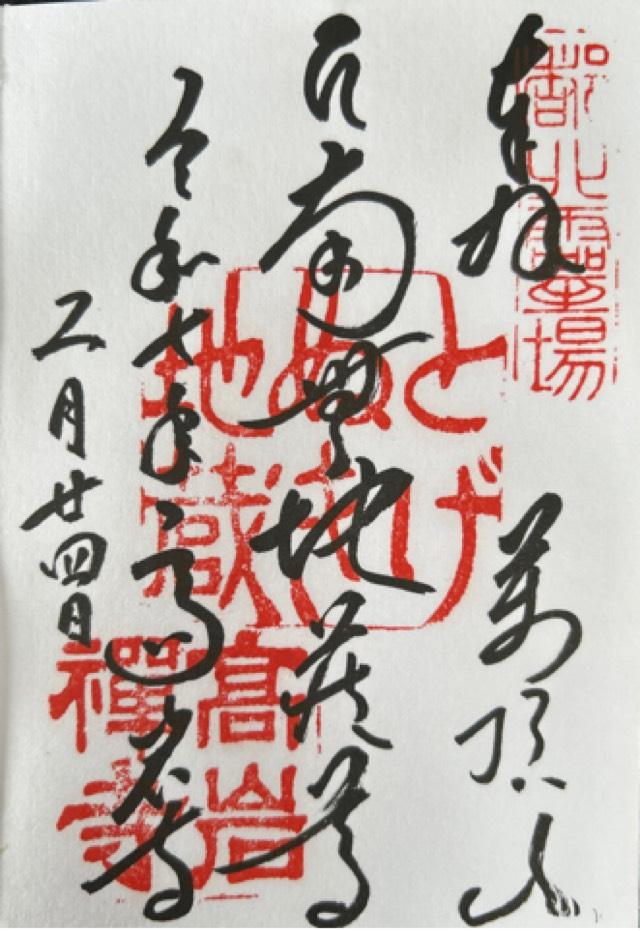 奉拝 萬頂山
南無地蔵尊
令和七年 高岩寺
二月廿四日
北靈場
とげ
ぬき
地蔵
髙岩
禪寺